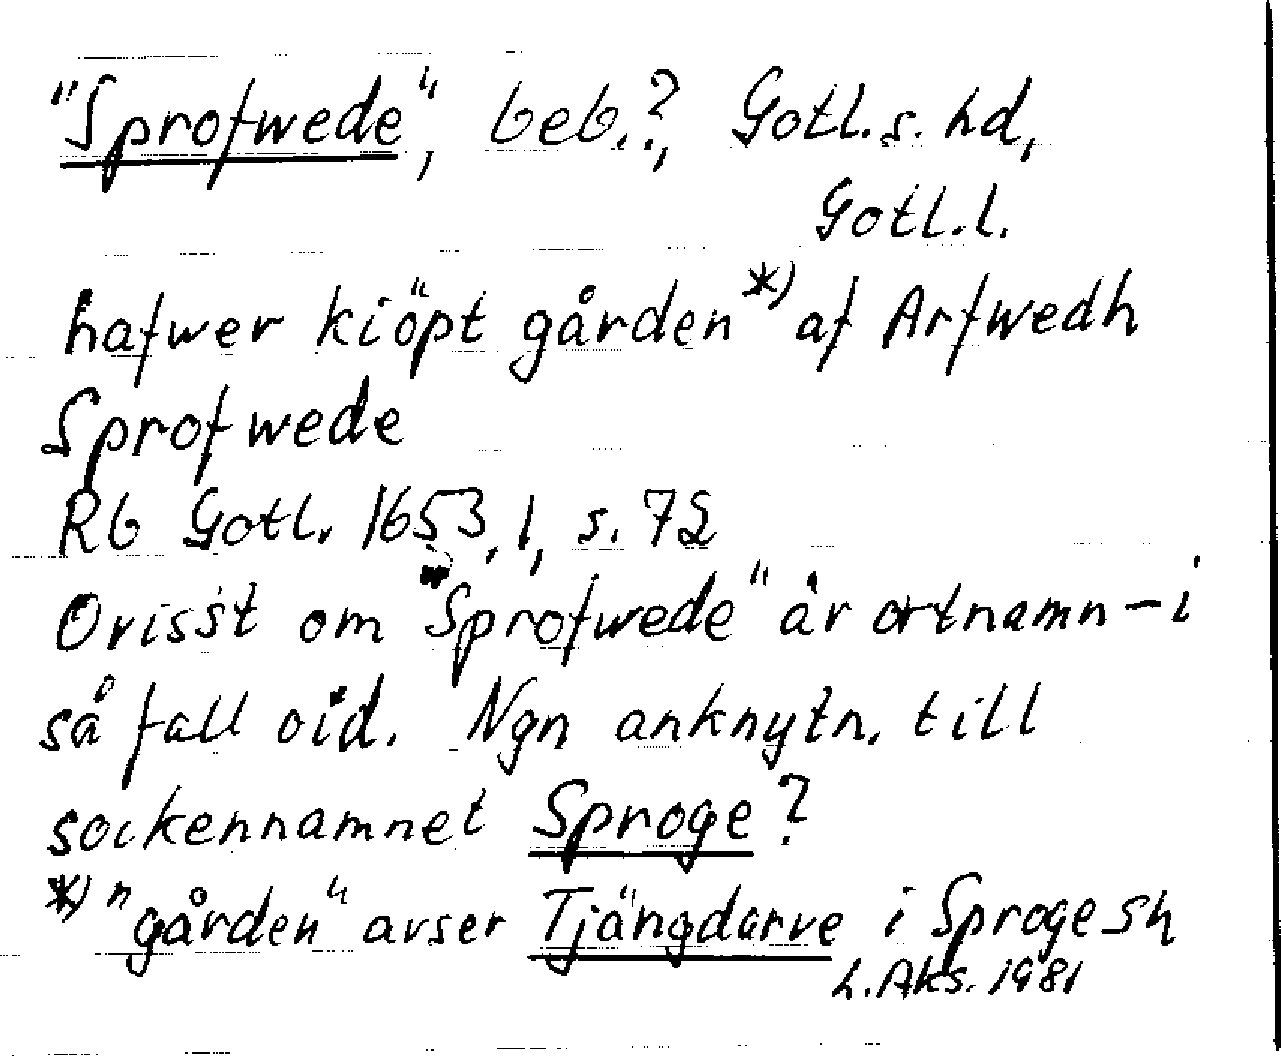 "Sprofwede", beb.?, Gotl.s. hd,
Gotl.l.
hafwer kiöpt gården *) af Arfwedh
Sprofwede
Rb Gotl. 1653, 1, s. 72
Ovisst om "Sprofwede" är ortnamn – i
så fall oid. Ngn anknytn. till
sockennamnet Sproge?
*) "gården" avser Tjängdarve i Sproge sn
L. Aks. 1981